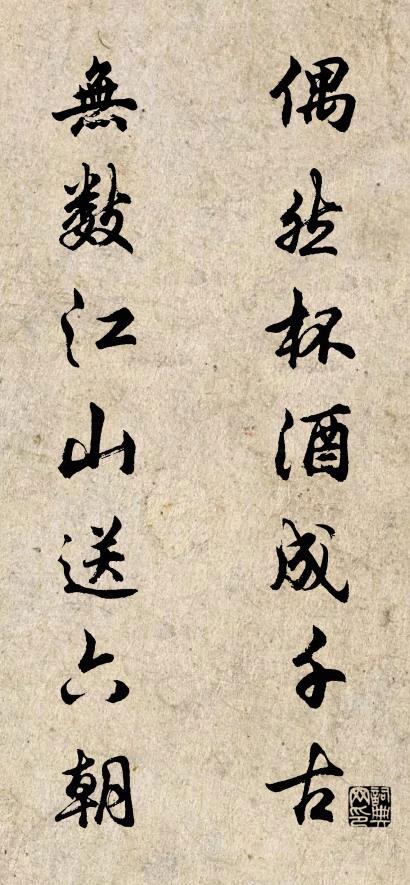 偶然杯酒成千古
無數江山送六朝
詞典網印